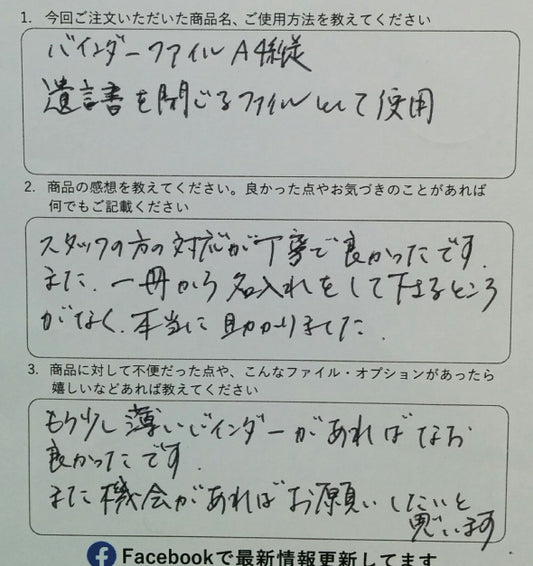 1. 今回ご注文いただいた商品名、ご使用方法を教えてください
バインダーファイル A4縦
遺言書を閉じるファイルとして使用
2. 商品の感想を教えてください。良かった点やお気づきのことがあれば
何でもご記載ください
スタッフの方の対応が丁寧で良かったです.
また、一冊から名入れをして下さるところ
がなく、本当に助かりました.
3. 商品に対して不便だった点や、こんなファイル・オプションがあったら
嬉しいなどあれば教えてください
もう少し薄いバインダーがあればなお
良かったです.
また機会があればお願いしたいと
思います
Facebookで最新情報更新してます